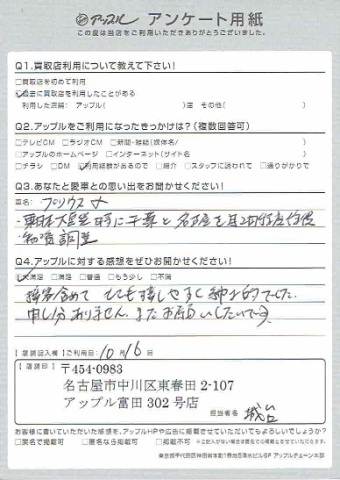 アップル アンケート用紙
この度は当店をご利用いただきありがとうございました。
Q1.買取店利用について教えて下さい!
□買取店を初めて利用
☑過去に買取店を利用したことがある
利用した店舗: アップル( )店 その他( )
Q2.アップルをご利用になったきっかけは?(複数回答可)
□テレビCM □ラジオCM □新聞・雑誌(媒体名/ )
□アップルのホームページ □インターネット(サイト名 )
□チラシ □DM ☑利用経験があるので □紹介 □スタッフに誘われて □通りがかりで
Q3.あなたと愛車との思い出をお聞かせください!
車名: プリウス
・東日本大震災時に千葉と名古屋を
Q4.アップルに対する感想をぜひお聞かせください!
☑大満足 □満足 □普通 □もう少し □不満
接客含めて とても話しやすく紳士的でした。
申し分ありません。またお願いしたいです。
【店舗記入欄】ご利用日: 10月16日
【店舗印】
〒454-0983
名古屋市中川区東春田2-107
アップル富田302号店
担当者名
お客様に書いていただいた感想を、アップルHPや広告に掲載させていただいてもよろしいでしょうか?
□実名で掲載可 □匿名なら掲載可 □掲載不可